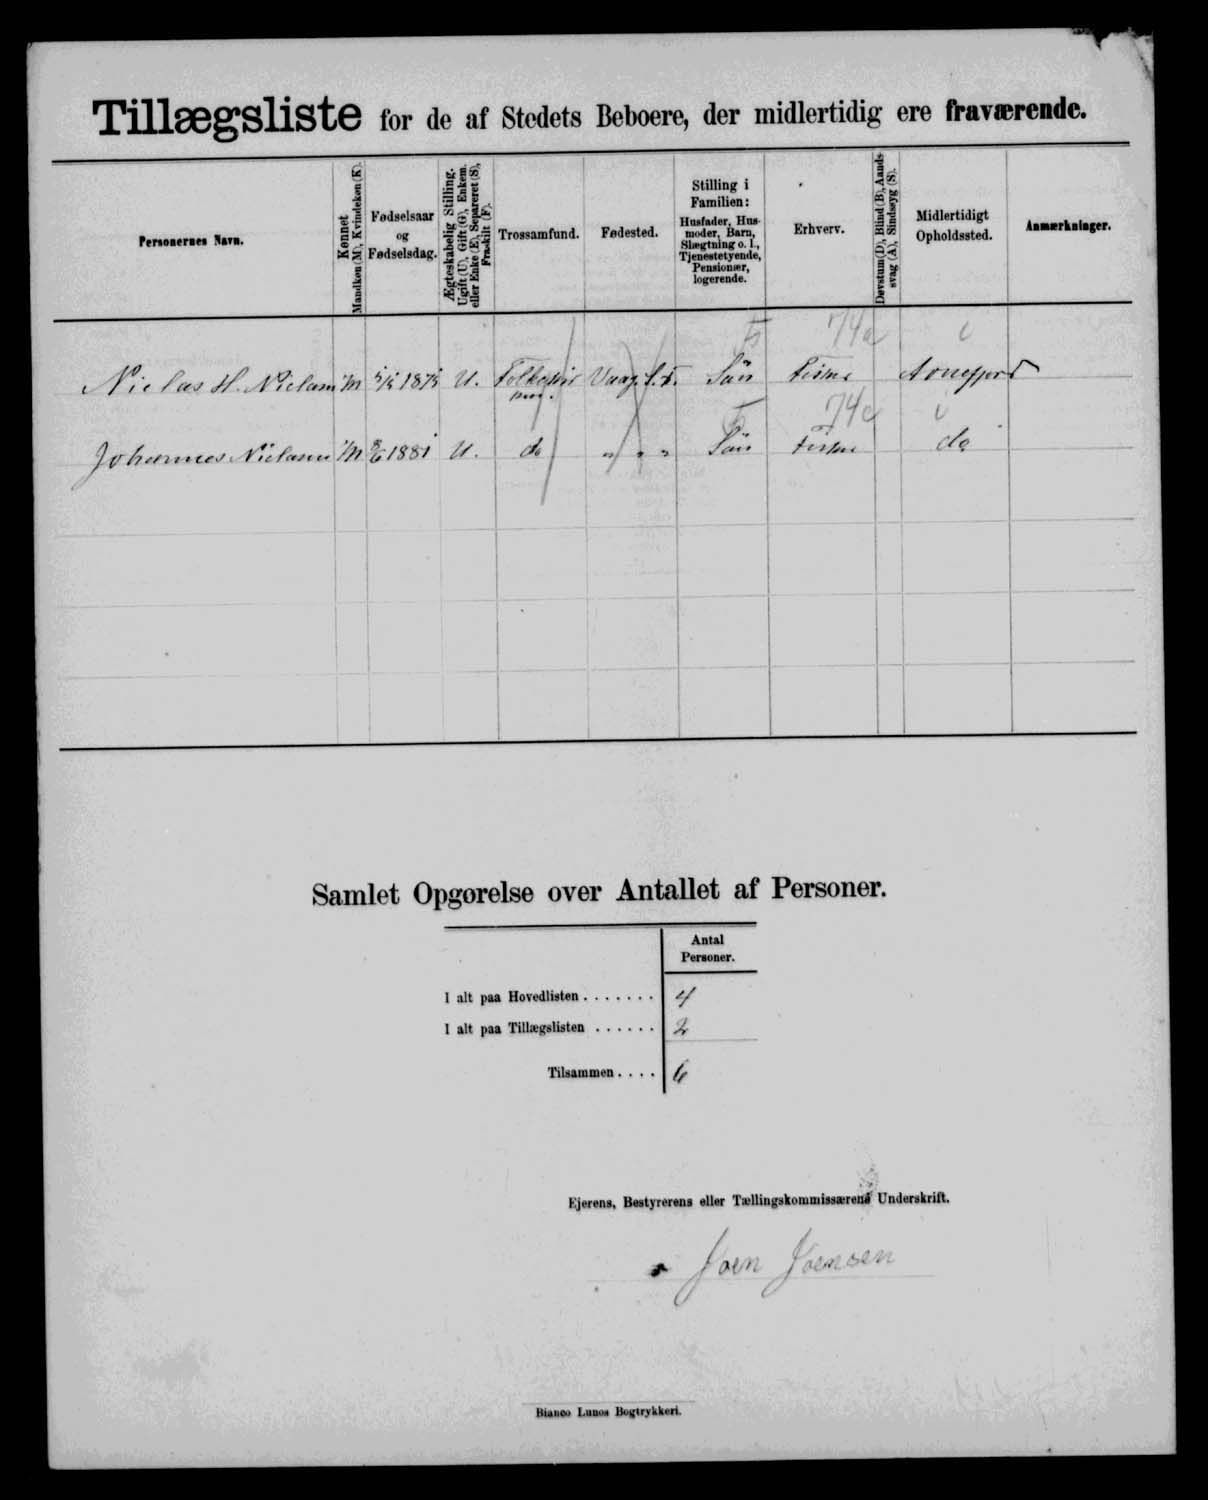 Tillægsliste for de af Stedets Beboere, der midlertidig ere fraværende.
Personernes Navn.
Kønnet
Mandkøn (M), Kvindekøn (K).
Fødselsaar
og
Fødselsdag.
Ægteskabelig Stilling.
Ugift (U), Gift (G), Enkem.
eller Enke (E), Separeret (S),
Fraskilt (F).
Trossamfund.
Fødested.
Stilling i
Familien:
Husfader, Hus-
moder, Barn,
Slægtning o. l.,
Tjenestetyende,
Pensionær,
logerende.
Erhverv.
Døvstum (D), Blind (B), Aands-
svag (A), Sindssyg (S).
Midlertidigt
Opholdssted.
Anmærkninger.
74a i
Niclas H. Niclasen M 1875 U. Vaag Sön Fisker Arnefjord
74a i
Johannes Niclasen M 8/6 1881 U. do " " " Sön Fisker do
Samlet Opgørelse over Antallet af Personer.
Antal
Personer.
I alt paa Hovedlisten . . . . . . . 4
I alt paa Tillægslisten . . . . . . 2
Tilsammen . . . . 6
Ejerens, Bestyrerens eller Tællingskommissærens Underskrift.
Joen Joensen
Bianco Lunos Bogtrykkeri.